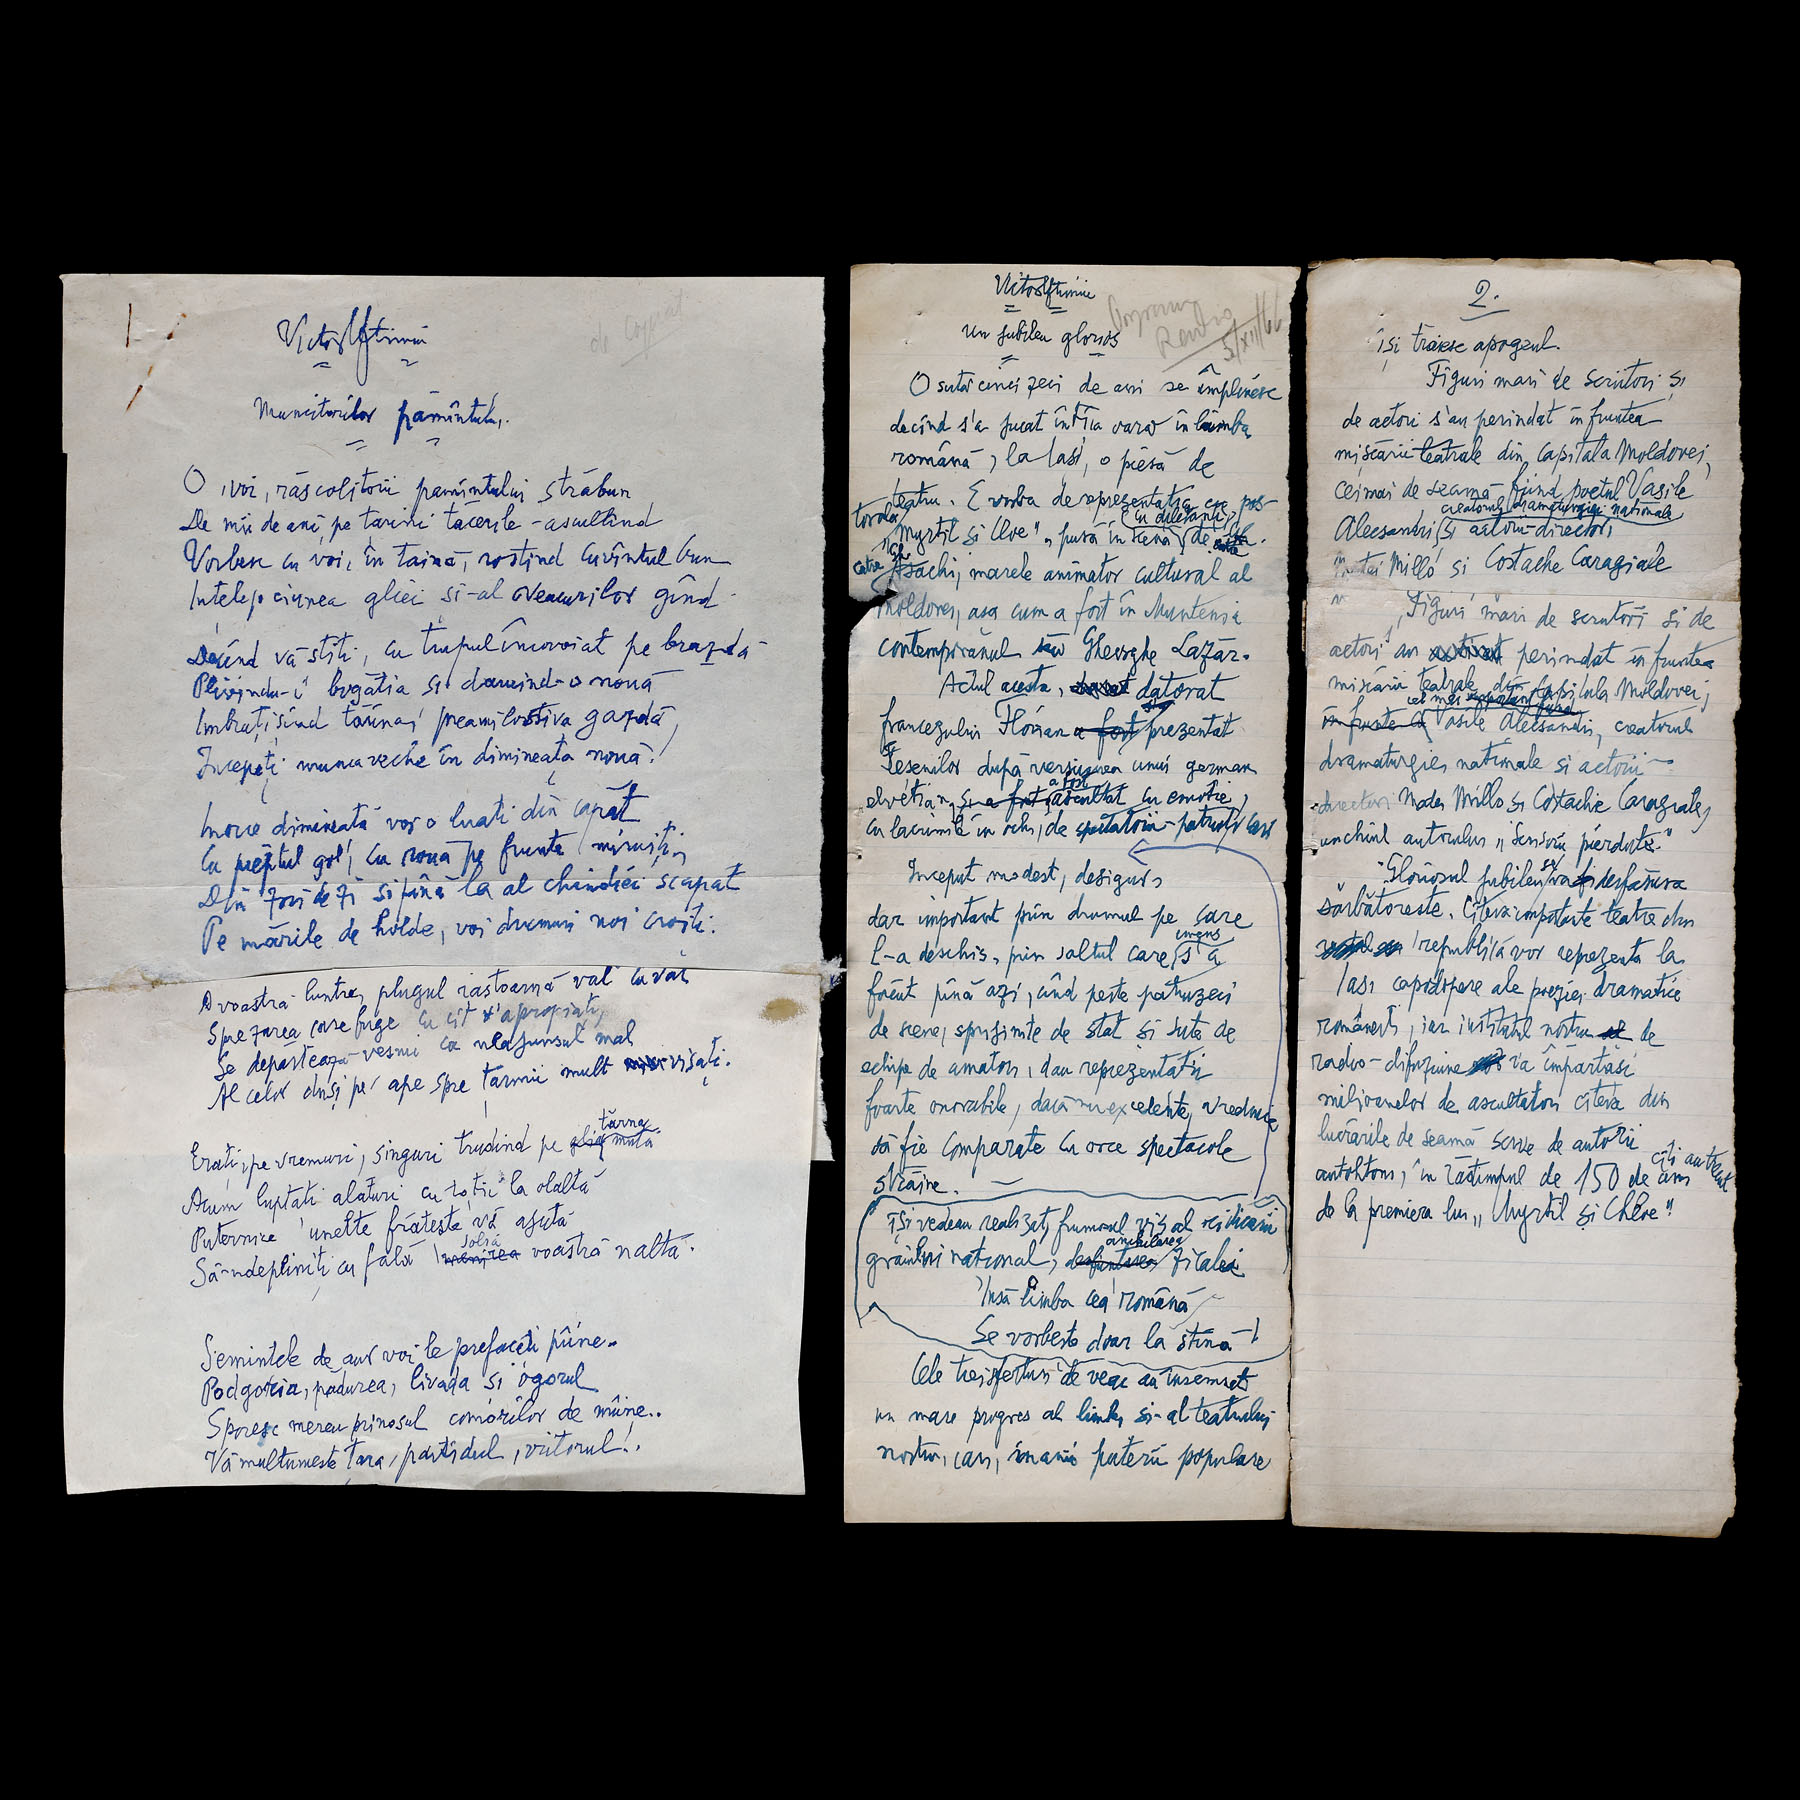 Victor Eftimiu
de copiat
Muncitorilor pămîntului.
O, voi, răscolitorii pamîntului străbun
De mii de ani, pe țarini tăcerile-ascultînd
Vorbesc cu voi, în taină, rostind cuvîntul bun
Intelepciunea gliei si-al veacurilor gînd
Decînd vă stiti, cu trupul încovoiat pe brazdă
bogătia si o nouă
Imbrațisînd tărîna, preamilostiva gazdă,
Incepeți munca veche în dimineața nouă!
Inoue dimineată vor o luati din capăt
Cu pieptul gol, cu roua pe frunte
Din zori de zi si pînă la al chindiei scapat
Pe mările de holde, voi drumuri noi croiti.
A voastră luntre, plugul răstoarnă val cu val
Spre zarea care fuge cu cît v'apropiați,
Se depărtează vesnic ca neajunsul mal
Al celor duși pe ape spre țărmii mult visați.
Erati, pe vremuri, singuri trudind pe glia mută
tărna
Acum luptati alaturi cu totii la olaltă
Puternice unelte frățeste vă ajută
solia
Să-ndepliniti cu fală menirea voastră naltă.
Semintele de aur voi le prefaceti pîine..
Podgoria, pădurea, livada si ogorul
Sporesc mereu prinosul comorilor de mîine..
Vă multumeste tara, partidul, viitorul!.
Victor Eftimiu
Radio
5/XII/66
Un jubileu glorios
O sută cinci zeci de ani se împlinesc
decînd s'a jucat întîia oară în limba
română, la Iasi, o piesă de
teatru. E vorba de reprezentatia cu pas-
torala
cu diletanti,
"Myrtil si Cloe", pusă în scenă de
catre
Gh. Asachi, marele animator cultural al
Moldovei, asa cum a fost în Muntenia
contemporanul său Gheorghe Lazăr.
Actul acesta, datorat
francezului Florian a fost prezentat
Iesenilor după versiunea unui german
a fost
elvétian, si a fost ascultat cu emotie,
cu lacrimile în ochi, de spectatorii-patrioti cari
Inceput modest, desigur,
dar important prin drumul pe care
imens
l-a deschis, prin saltul care s'a
făcut pînă azi, cînd peste patruzeci
de scene, sprijinite de stat si sute de
echipe de amatori, dau reprezentatii
foarte onorabile, dacă nu excelente, vrednice
să fie comparate cu orce spectacole
străine.
îsi vedeau realizat, frumosul vis al ridicării
anihilarea
graiului national, desfiintarea zicalei
Insă limba cea română
Se vorbeste doar la stînă!
Cele treisferturi de veac au însemnat
un mare progres al limbii si-al teatrului
nostru, cari, în anii puterii populare
2.
își trăiesc apogeul.
Figuri mari de scriitori si
de actori s'au perindat în fruntea
miscării teatrale din Capitala Moldovei,
cei mai de seamă fiind poetul Vasile
creatorul dramaturgiei nationale
Alecsandri, si actorii-directori
Matei Millo si Costache Caragiale
Figuri mari de scriitori si de
actori au perindat în fruntea
miscării teatrale din Capitala Moldovei,
cel mai important fiind
în frunte cu Vasile Alecsandri, creatorul
dramaturgiei nationale si actorii-
directori Matei Millo si Costache Caragiale,
unchiul autorului "Scrisorii pierdute."
Gloriosul jubileu se va desfăsura
sărbătoreste. Cîteva importante teatre din
republică vor reprezenta la
Iasi capodopere ale poeziei dramatice
românesti, iar institutul nostru de
radio-difuziune va împărtăsi
milioanelor de ascultatori cîteva din
lucrările de seamă scrise de autorii
autohtoni, în răstimpul de 150 de ani
cîti au trecut
de la premiera lui "Myrtil si Chloe"